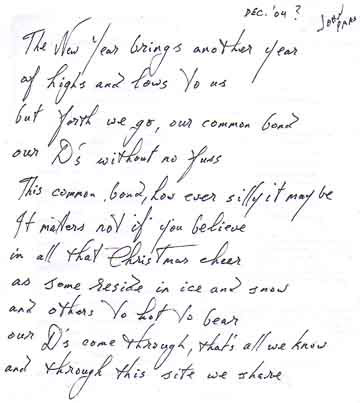 DEC. '04 ?
JOHN
The New Year brings another year
of highs and lows to us
but forth we go, our common bond
our D's without no fuss
This common bond, how ever silly it may be
It matters not if you believe
in all that Christmas cheer
as some reside in ice and snow
and others to hot to bear
our D's come through, that's all we know
and through this site we share